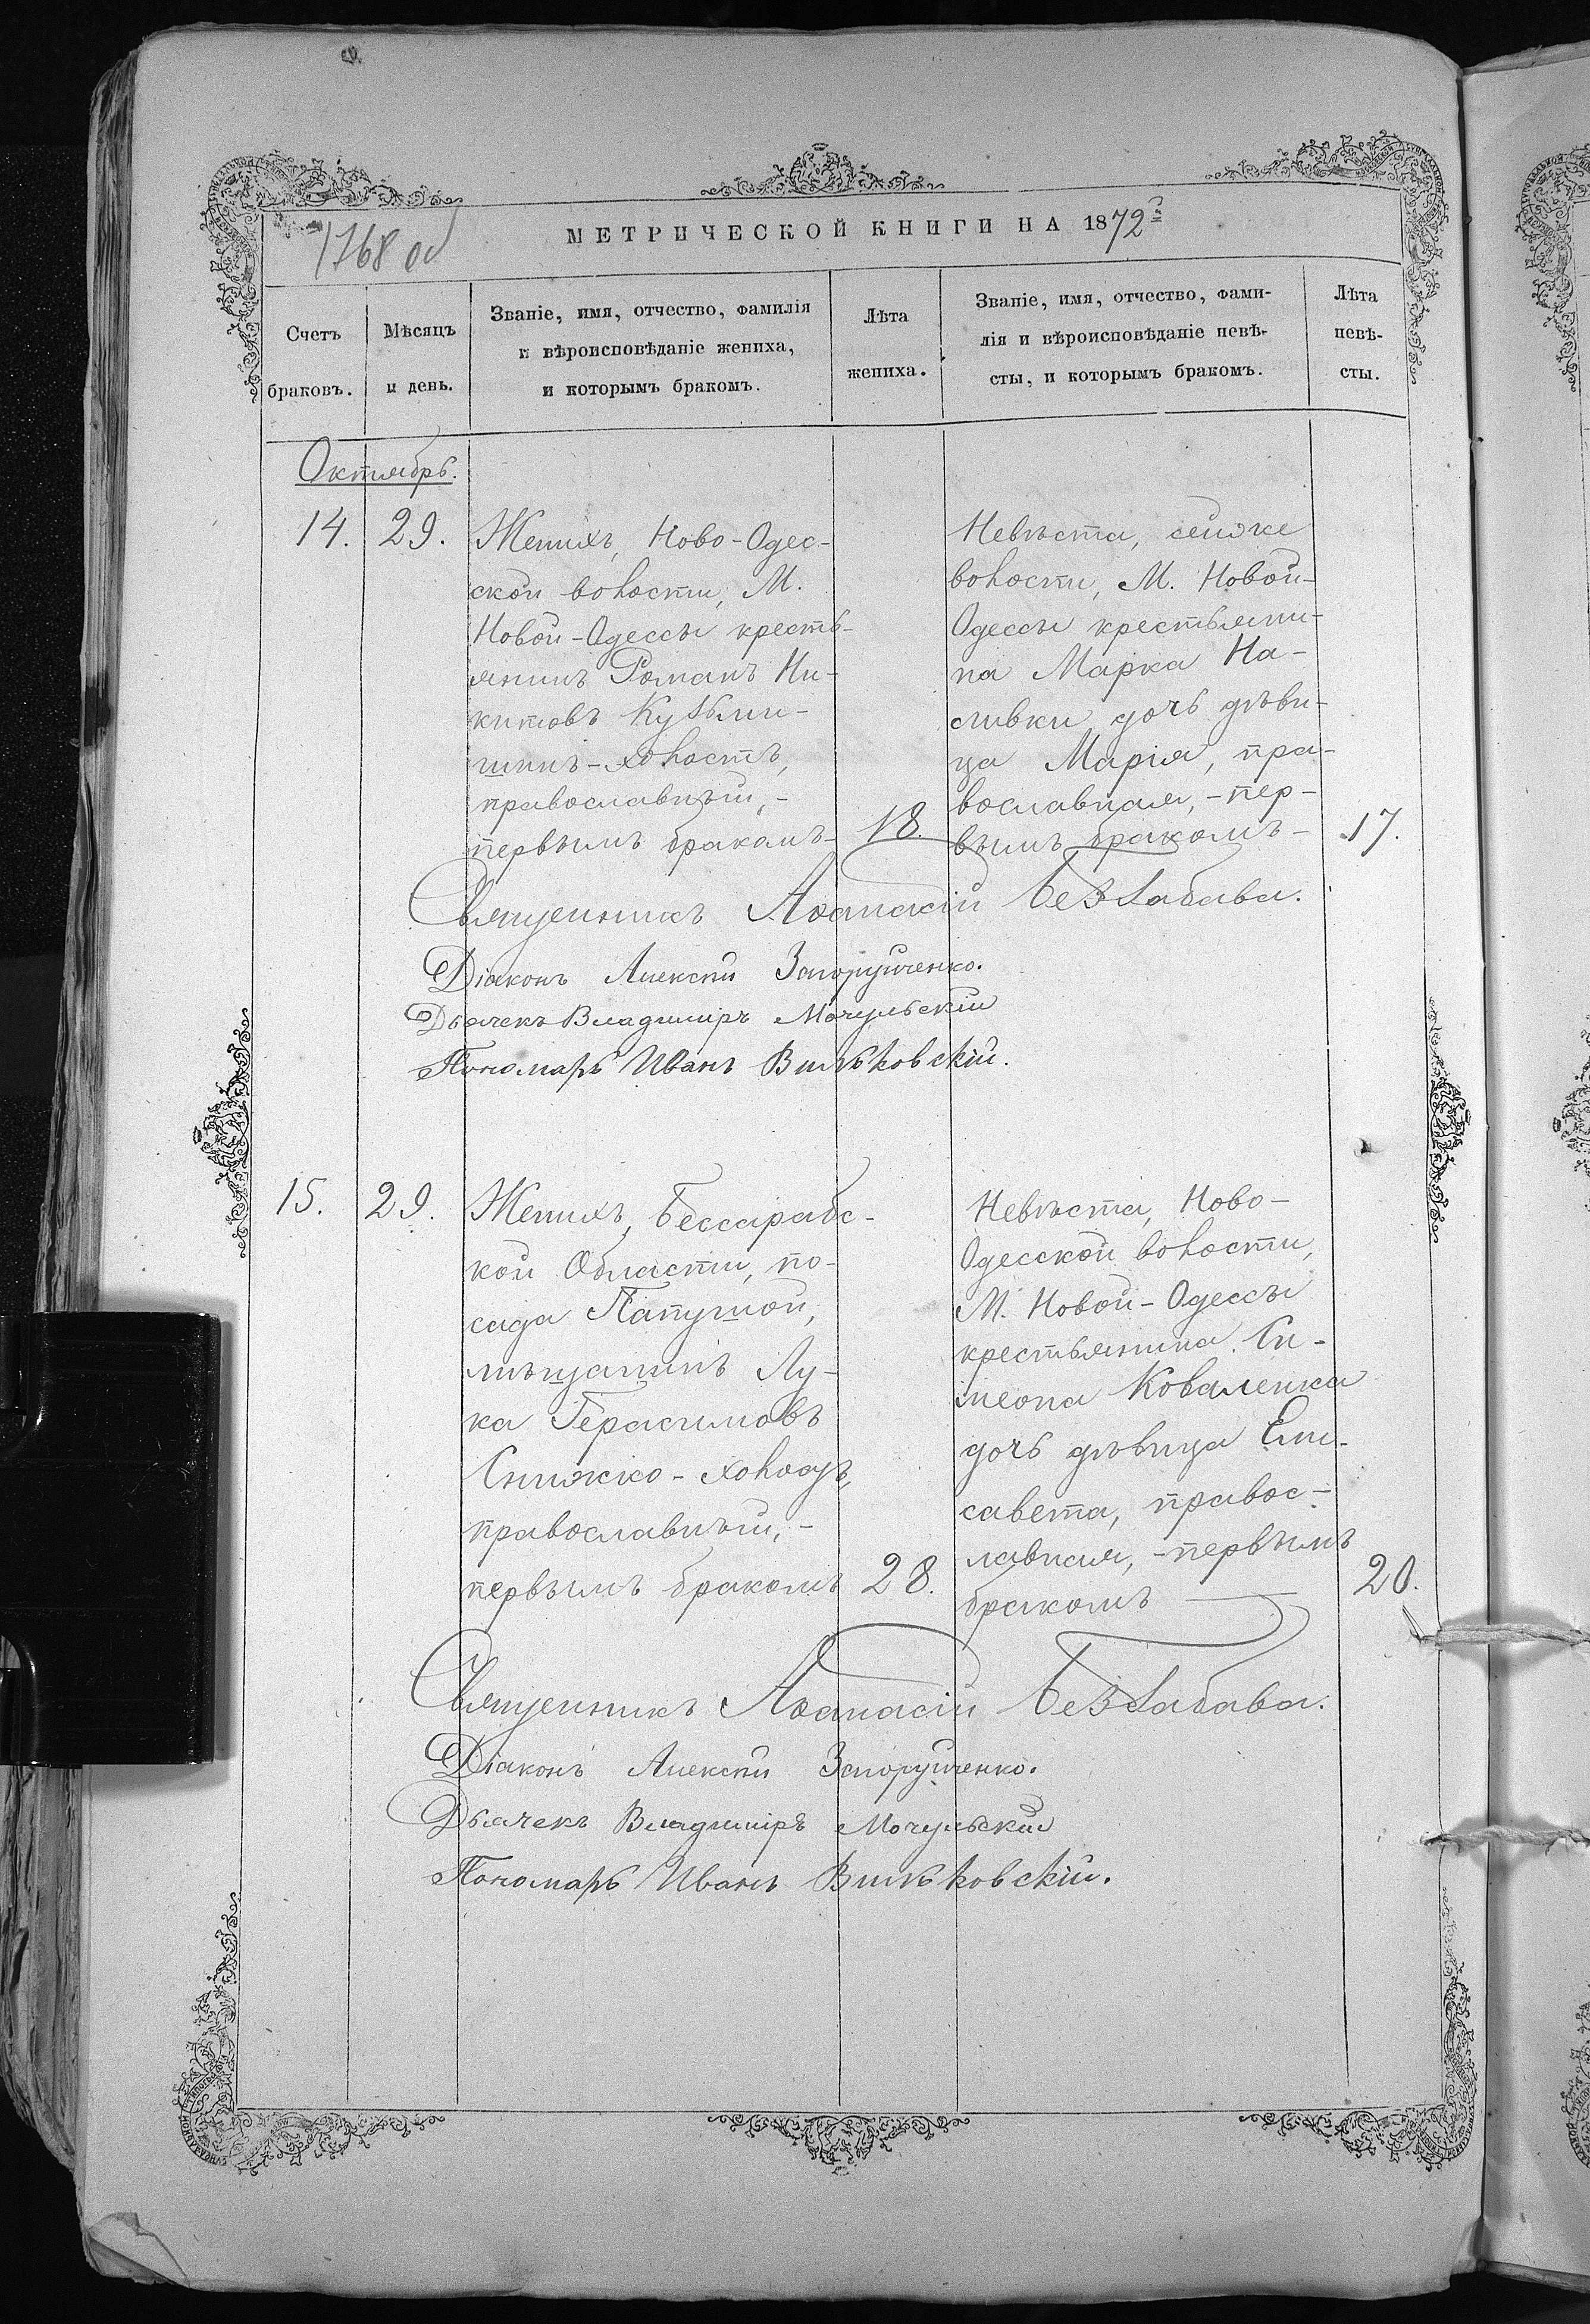 1768 об
МЕТРИЧЕСКОЙ КНИГИ НА 1872
Счетъ браковъ.
Мѣсяцъ и день.
Званіе, имя, отчество, фамилія
и вѣроисповѣданіе жениха,
и которымъ бракомъ.
Лѣта
жениха.
Званіе, имя, отчество, фами-
лія и вѣроисповѣданіе невѣ-
сты, и которымъ бракомъ.
Лѣта
невѣ-
сты.
Октябрь.
14.
29.
Женихъ, Ново-Одес-
ской волости, М.
Новой-Одессы кресть-
янинъ Романъ Ни-
китовъ Кузьми-
шинъ-холостъ,
православный,-
первымъ бракомъ-
18.
Невѣста, сейже
волости, М. Новой-
Одессы крестьяни-
на Марка На-
ливки дочь дѣви-
ца Марія, пра-
вославная,-пер-
вымъ бракомъ-
17.
Священникъ Аѳанасій Беззабава.
Діаконъ Алексѣй Запорученко.
Дьячекъ Владиміръ Мочульскій
Пономарь Иванъ Вильковскій.
15.
29.
Женихъ, Бессарабс-
кой Области, по-
сада Папушой,
мѣщанинъ Лу-
ка Герасимовъ
Снижко-холостъ,
православный,-
первымъ бракомъ
28.
Невѣста, Ново-
Одесской волости,
М. Новой-Одессы
крестьянина Си-
меона Коваленка
дочь дѣвица Ели-
савета, правос-
лавная,-первымъ
бракомъ
20.
Священникъ Аѳанасій Беззабава.
Діаконъ Алексѣй Запорученко.
Дьячекъ Владиміръ Мочульскій
Пономарь Иванъ Вильковскій.